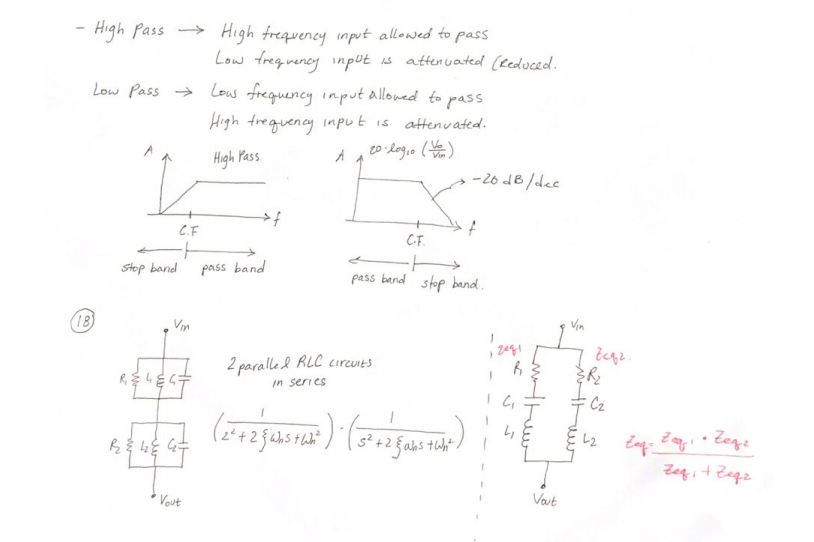 - High Pass → High frequency input allowed to pass
Low frequency input is attenuated (Reduced.
Low Pass → Low frequency input allowed to pass
High frequency input is attenuated.
A
High Pass
f
C.F
stop band pass band
A
20·log10 (Vo/Vin)
-20 dB/dec
f
C.F.
pass band stop band.
18
Vin
R1 L1 C1
R2 L2 C2
Vout
2 parallel RLC circuits
in series
(1/(s²+2ξωns+ωn²)) · (1/(s²+2ξωns+ωn²))
Vin
Zeq1
Zeq2.
R1
R2
C1
C2
L1
L2
Vout
Zeq = (Zeq1 · Zeq2)/(Zeq1 + Zeq2)